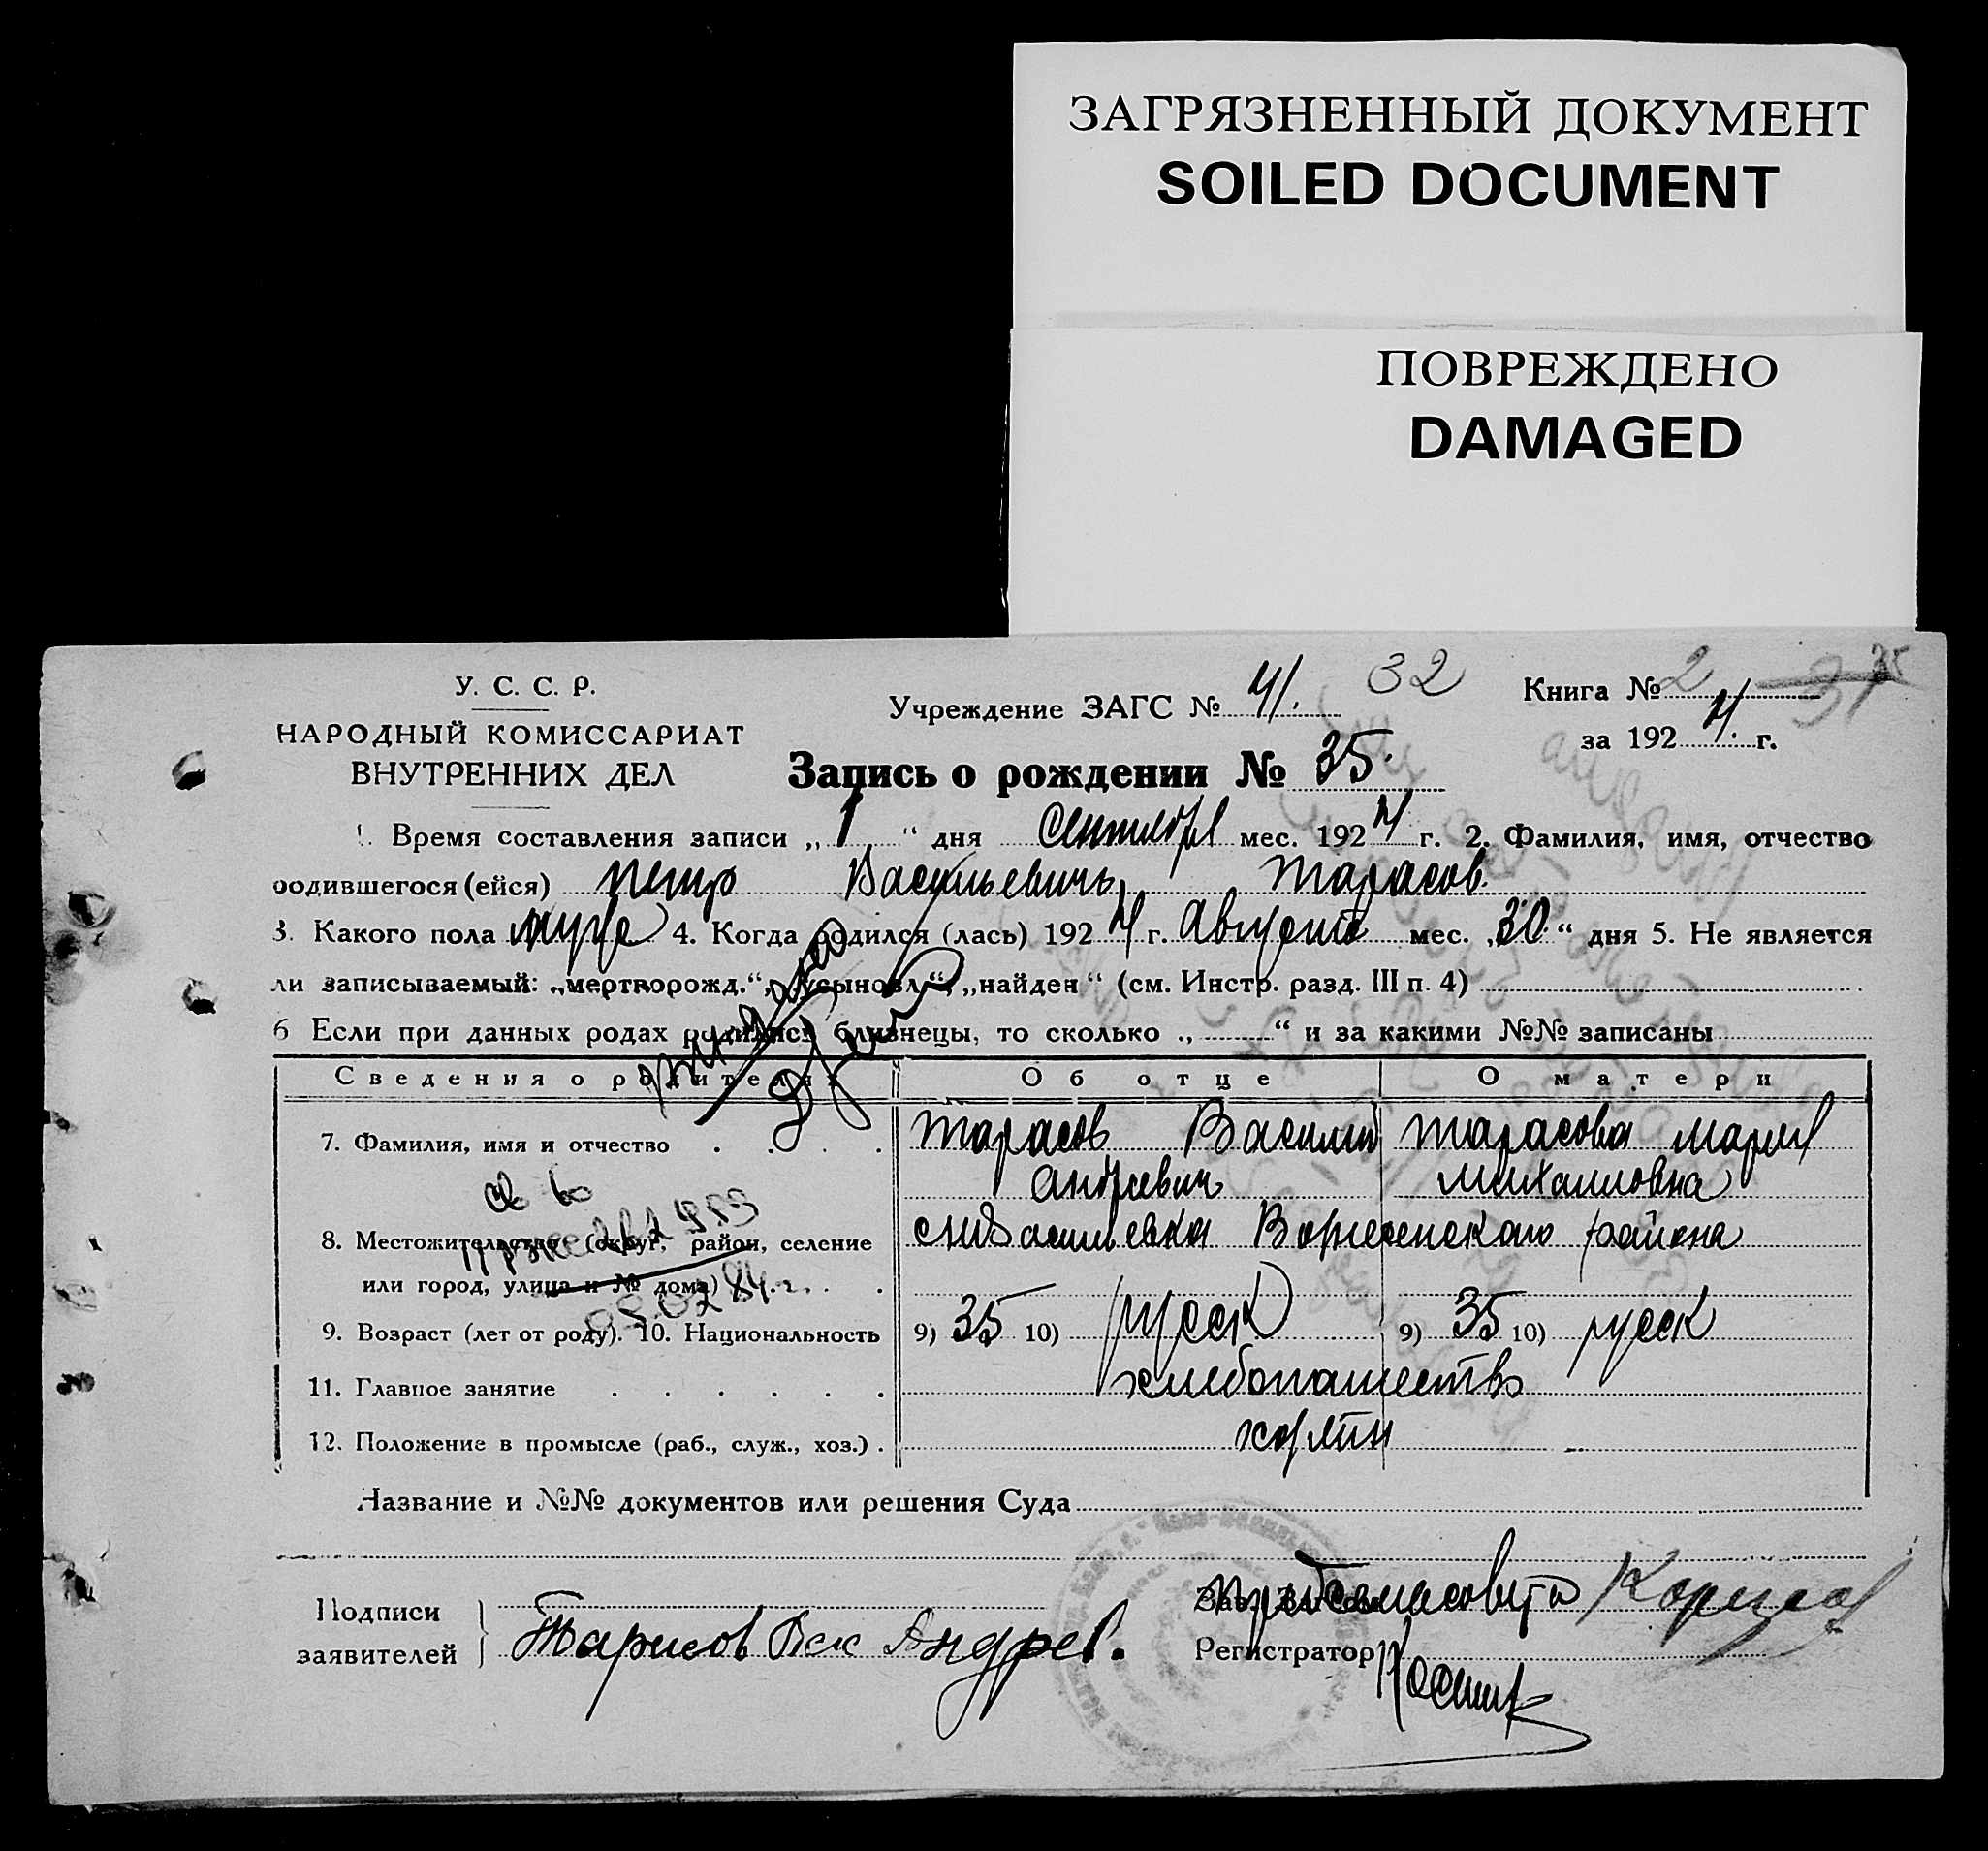 ЗАГРЯЗНЕННЫЙ ДОКУМЕНТ
SOILED DOCUMENT
ПОВРЕЖДЕНО
DAMAGED
У. С. С. Р.
НАРОДНЫЙ КОМИССАРИАТ
ВНУТРЕННИХ ДЕЛ
Учреждение ЗАГС № 41. 32
Книга № 2
за 1924. г.
Запись о рождении № 35.
1. Время составления записи „1“ дня мес. 1924 г. 2. Фамилия, имя, отчество
родившегося (ейся) Петр Васильевичь Тарасов.
3. Какого пола муж 4. Когда родился (лась) 1924 г. Августа мес. „30“ дня 5. Не является
ли записываемый: „мертворожд.“, „усыновл.“, „найден“ (см. Инстр. разд. III п. 4)
6 Если при данных родах родились близнецы, то сколько „ “ и за какими №№ записаны
Сведения о родителях Об отце О матери
7. Фамилия, имя и отчество Тарасов Василий Тарасова Мария
Андреевич Михаиловна
8. Местожительство (округ, район, селение района
или город, улица и № дома)
9. Возраст (лет от роду). 10. Национальность 9) 35 10) русск 9) 35 10) русск
11. Главное занятие хлебопашество
12. Положение в промысле (раб., служ., хоз.)
Название и №№ документов или решения Суда
Подписи
заявителей Тарасов Вас Андрев.
Регистратор